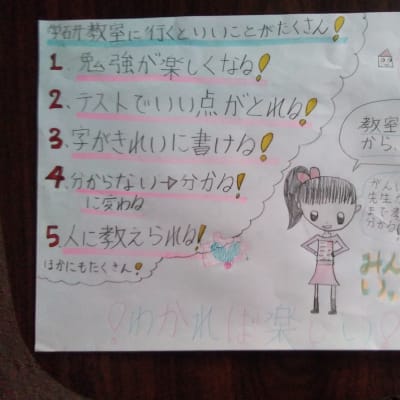 学研教室に行くといいことがたくさん!
1 勉強が楽しくなる!
2、テストでいい点がとれる!
3、字がきれいに書ける!
4、分からない→分かる!
に変わる
5、人に教えられる!
ほかにもたくさん!
教室
から、
がんば
先生が
まで教
分かる!
みん
い。
!わかれば楽しい!